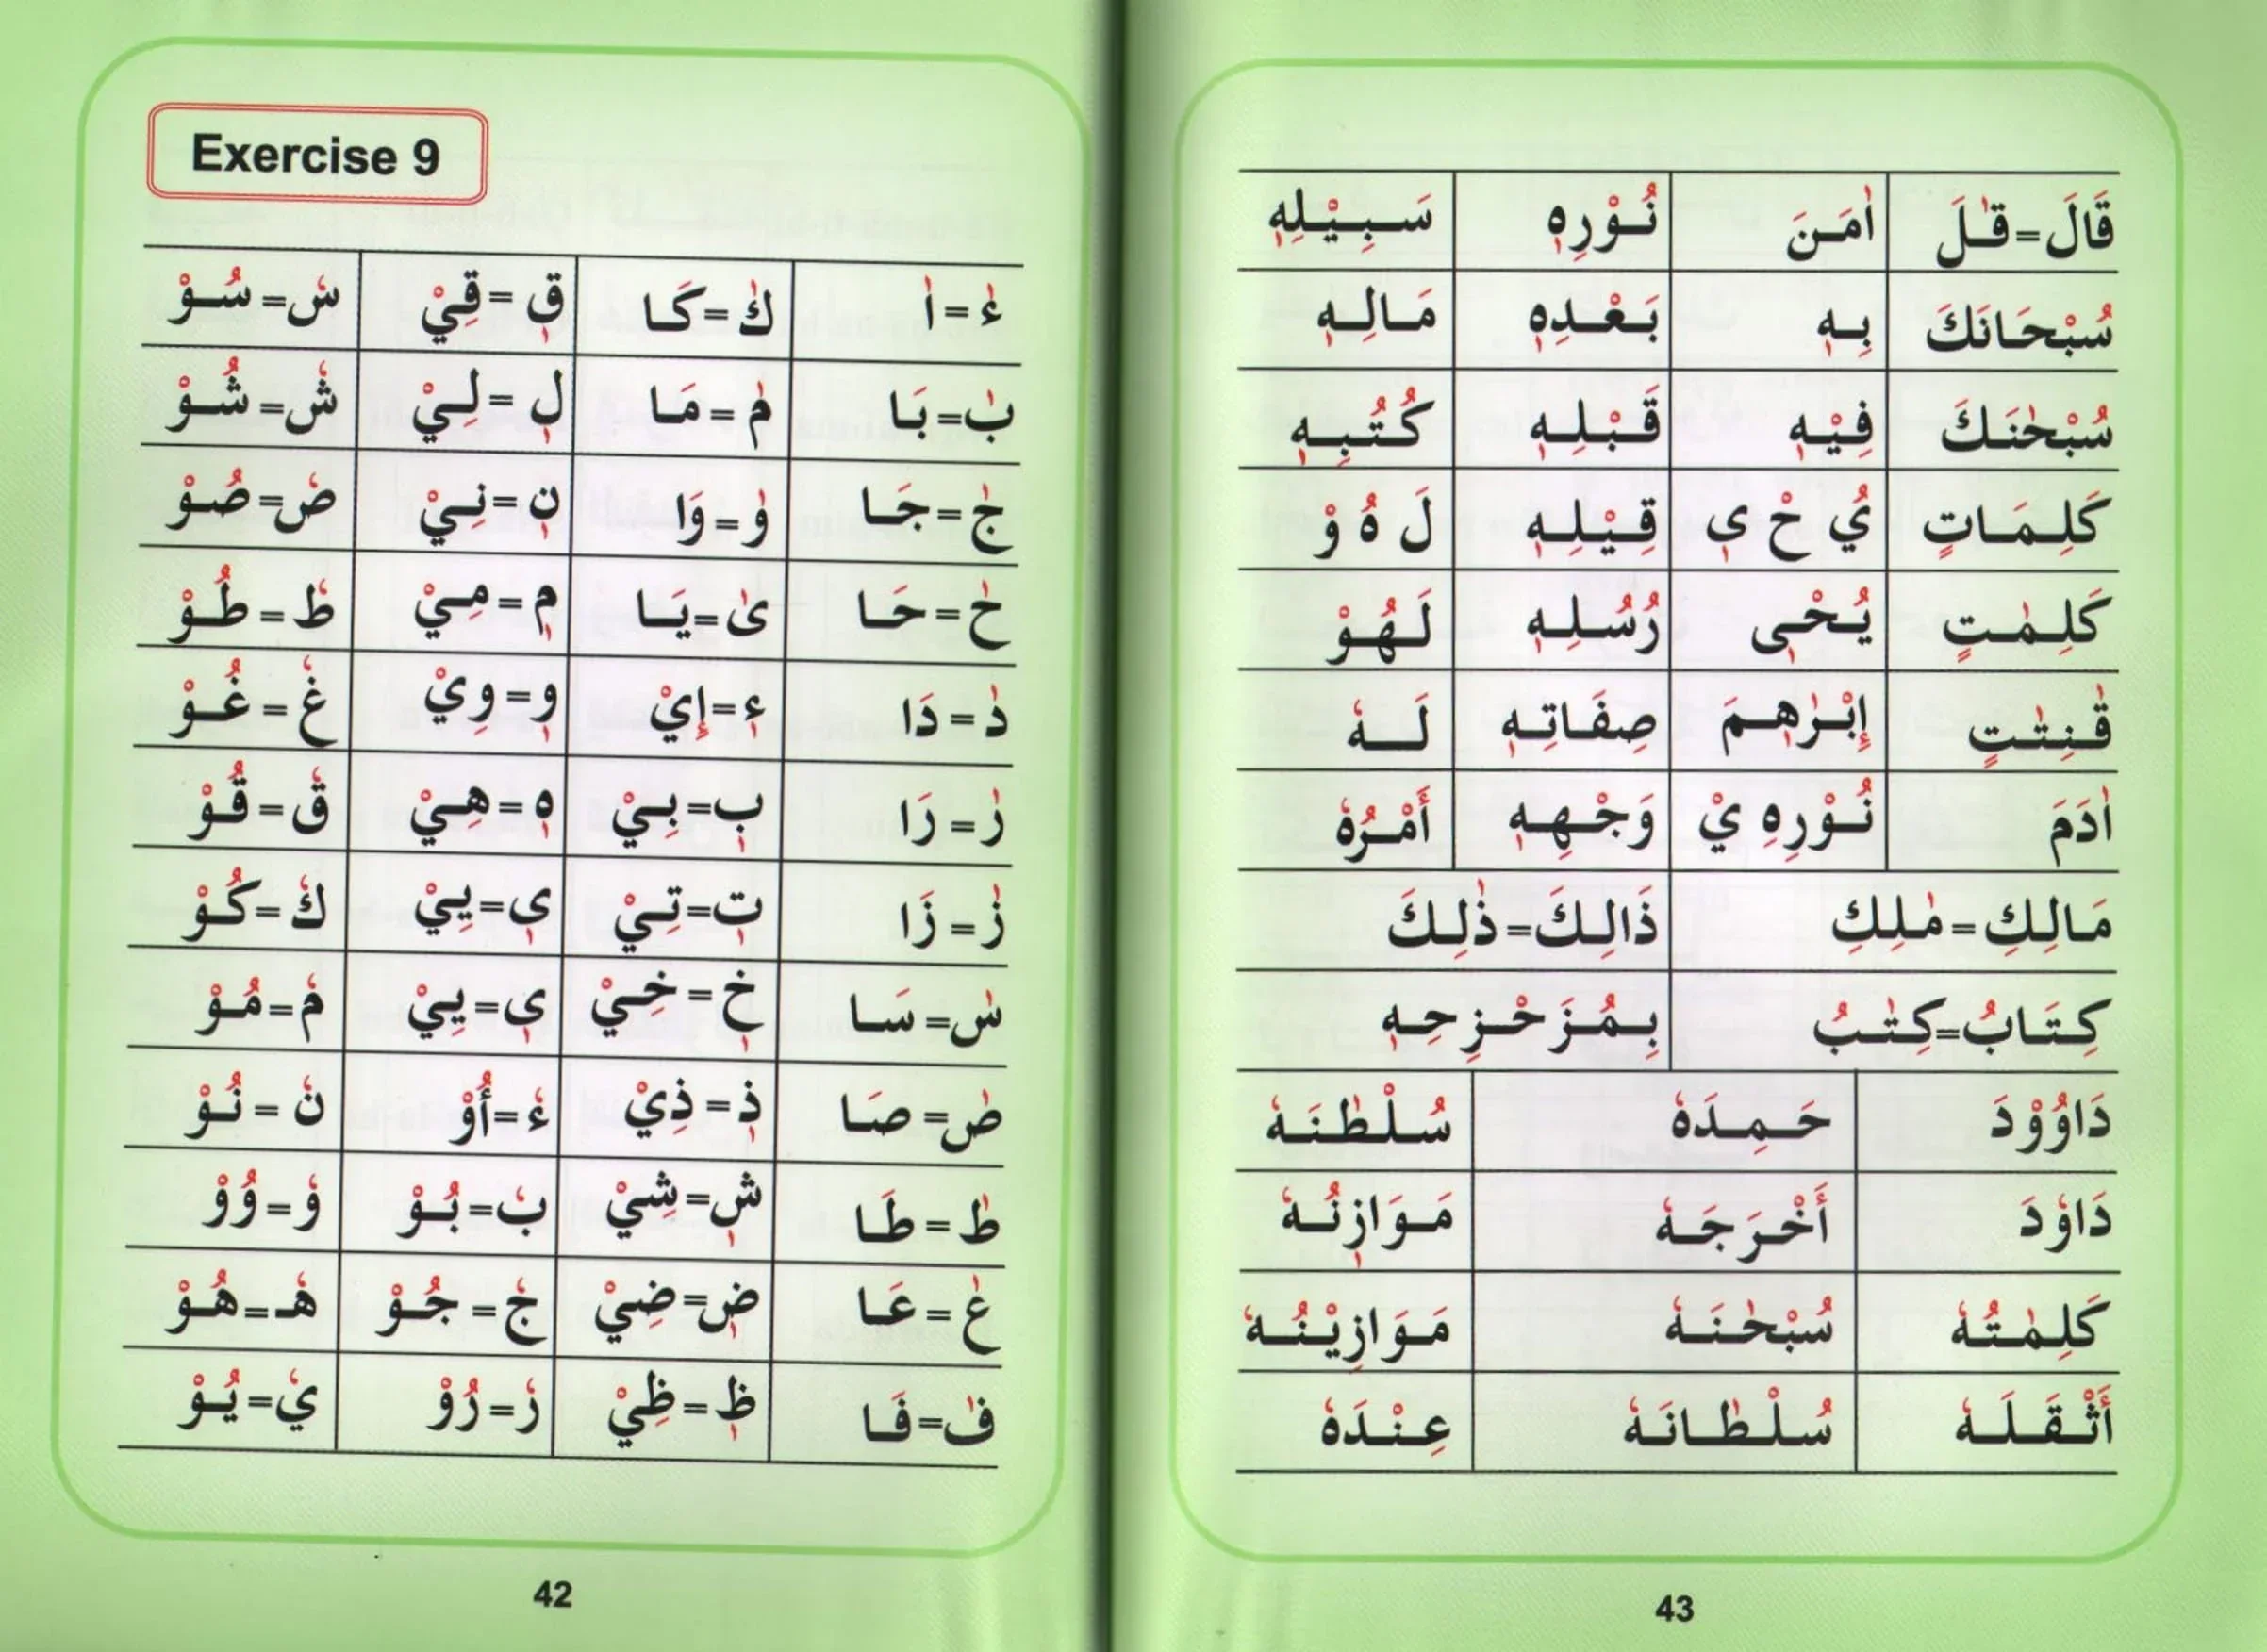 Exercise 9
ءٰ = اٰ كٰ = كَا قٖ = قِيْ سٗ = سُوْ
بٰ = بَا مٰ = مَا لٖ = لِيْ شٗ = شُوْ
جٰ = جَا وٰ = وَا نٖ = نِيْ صٗ = صُوْ
حٰ = حَا ىٰ = يَا مٖ = مِيْ طٗ = طُوْ
دٰ = دَا ءٖ = إِيْ وٖ = وِيْ غٗ = غُوْ
رٰ = رَا بٖ = بِيْ هٖ = هِيْ قٗ = قُوْ
زٰ = زَا تٖ = تِيْ يٖ = يِيْ كٗ = كُوْ
سٰ = سَا خٖ = خِيْ يٖ = يِيْ مٗ = مُوْ
صٰ = صَا ذٖ = ذِيْ ءٗ = أُوْ نٗ = نُوْ
طٰ = طَا شٖ = شِيْ بٗ = بُوْ وٗ = وُوْ
عٰ = عَا ضٖ = ضِيْ جٗ = جُوْ هٗـ = هُوْ
فٰ = فَا ظٖ = ظِيْ رٗ = رُوْ يٗ = يُوْ
42
قَالَ = قٰلَ اٰمَنَ نُوْرِهٖ سَبِيْلِهٖ
سُبْحَانَكَ بِهٖ بَعْدِهٖ مَالِهٖ
سُبْحٰنَكَ فِيْهٖ قَبْلِهٖ كُتُبِهٖ
كَلِمَاتٍ يُ حْ يٖ قِيْلِهٖ لَ هُ وْ
كَلِمٰتٍ يُحْيٖ رُسُلِهٖ لَهُوْ
قٰنِتٰتٍ إِبْرٰهٖمَ صِفَاتِهٖ لَهٗ
اٰدَمَ نُوْرِهِ يْ وَجْهِهٖ أَمْرُهٗ
مَالِكِ = مٰلِكِ ذَالِكَ = ذٰلِكَ
كِتَابُ = كِتٰبُ بِمُزَحْزِحِهٖ
دَاوُوْدَ حَمِدَهٗ سُلْطٰنَهٗ
دَاوٗدَ أَخْرَجَهٗ مَوَازِنُهٗ
كَلِمٰتُهٗ سُبْحٰنَهٗ مَوَازِيْنُهٗ
أَثْقَلَهٗ سُلْطَانَهٗ عِنْدَهٗ
43